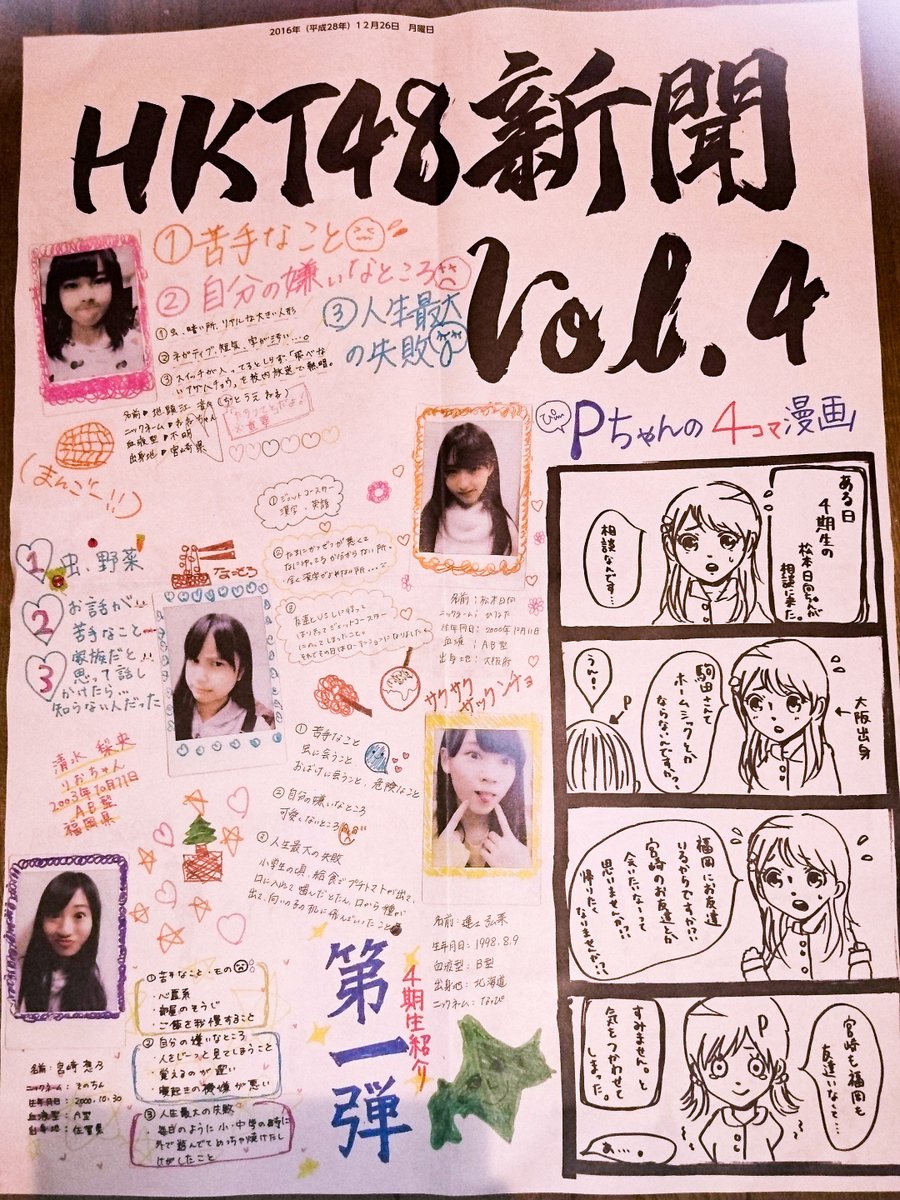 2016年（平成28年）12月26日　月曜日
HKT48新聞
Vol.4
①苦手なこと
②自分の嫌いなところ
③人生最大
の失敗
①虫、暗い所、リアルな大きい人形
②ネガティブ、短気、字が汚い…。
③スイッチが入ってるとしらず、「食べな
を校内放送で熱唱。
名前
ニックネーム
血液型 不明
出身地 宮崎県
(まんごー!!)
Pちゃんの4コマ漫画
①ジェットコースター
漢字・英語
1 虫、野菜
2 お話が…
苦手なこと
3 家族だと…
思って話し
かけたら…
知らない人だった
清水 梨央
りおちゃん
2003年10月21日
AB型
福岡県
名前：松本日向
ニックネーム：ひなた
生年月日：2000年12月11日
血液：AB型
出身地：大阪府
サクサク
①苦手なこと
虫に会うこと
おばけに会うこと、危険なこと
②自分の嫌いなところ
可愛くないところ
③人生最大の失敗
小学生の頃、給食でプチトマトが出て、
口に入れて噛んだとたん、口から種が
出て、向いの子の机に飛んでいったこと
名前：進士弘菜
生年月日：1998.8.9
血液型：B型
出身地：北海道
ニックネーム：なっぴ
①苦手なこと・もの
・心霊系
・部屋のそうじ
・ご飯を我慢すること
②自分の嫌いなところ
・人をじーっと見てしまうこと
・覚えるのが遅い
・寝起きの機嫌が悪い
③人生最大の失敗
・毎日のように小・中学の時に
外で遊んでてめっちゃ焼けたし
けがしたこと
名前：宮﨑想乃
ニックネーム：そのちん
生年月日：2000.10.30
血液型：A型
出身地：佐賀県
4期生紹介
第一弾
ある日
4期生の
松本日向ちゃんが
相談に来た。
相談なんです…
駒田さんて
ホームシックとか
ならないんですか？
うん！
P
←大阪出身
福岡にお友達
いるからですか!?
宮崎のお友達とか
会いたいなーって
思いませんか!?
帰りたく
なりませんか!?
宮崎も福岡も
友達いなくて
P
すみません。と
気をつかわせて
しまった。
あ…。